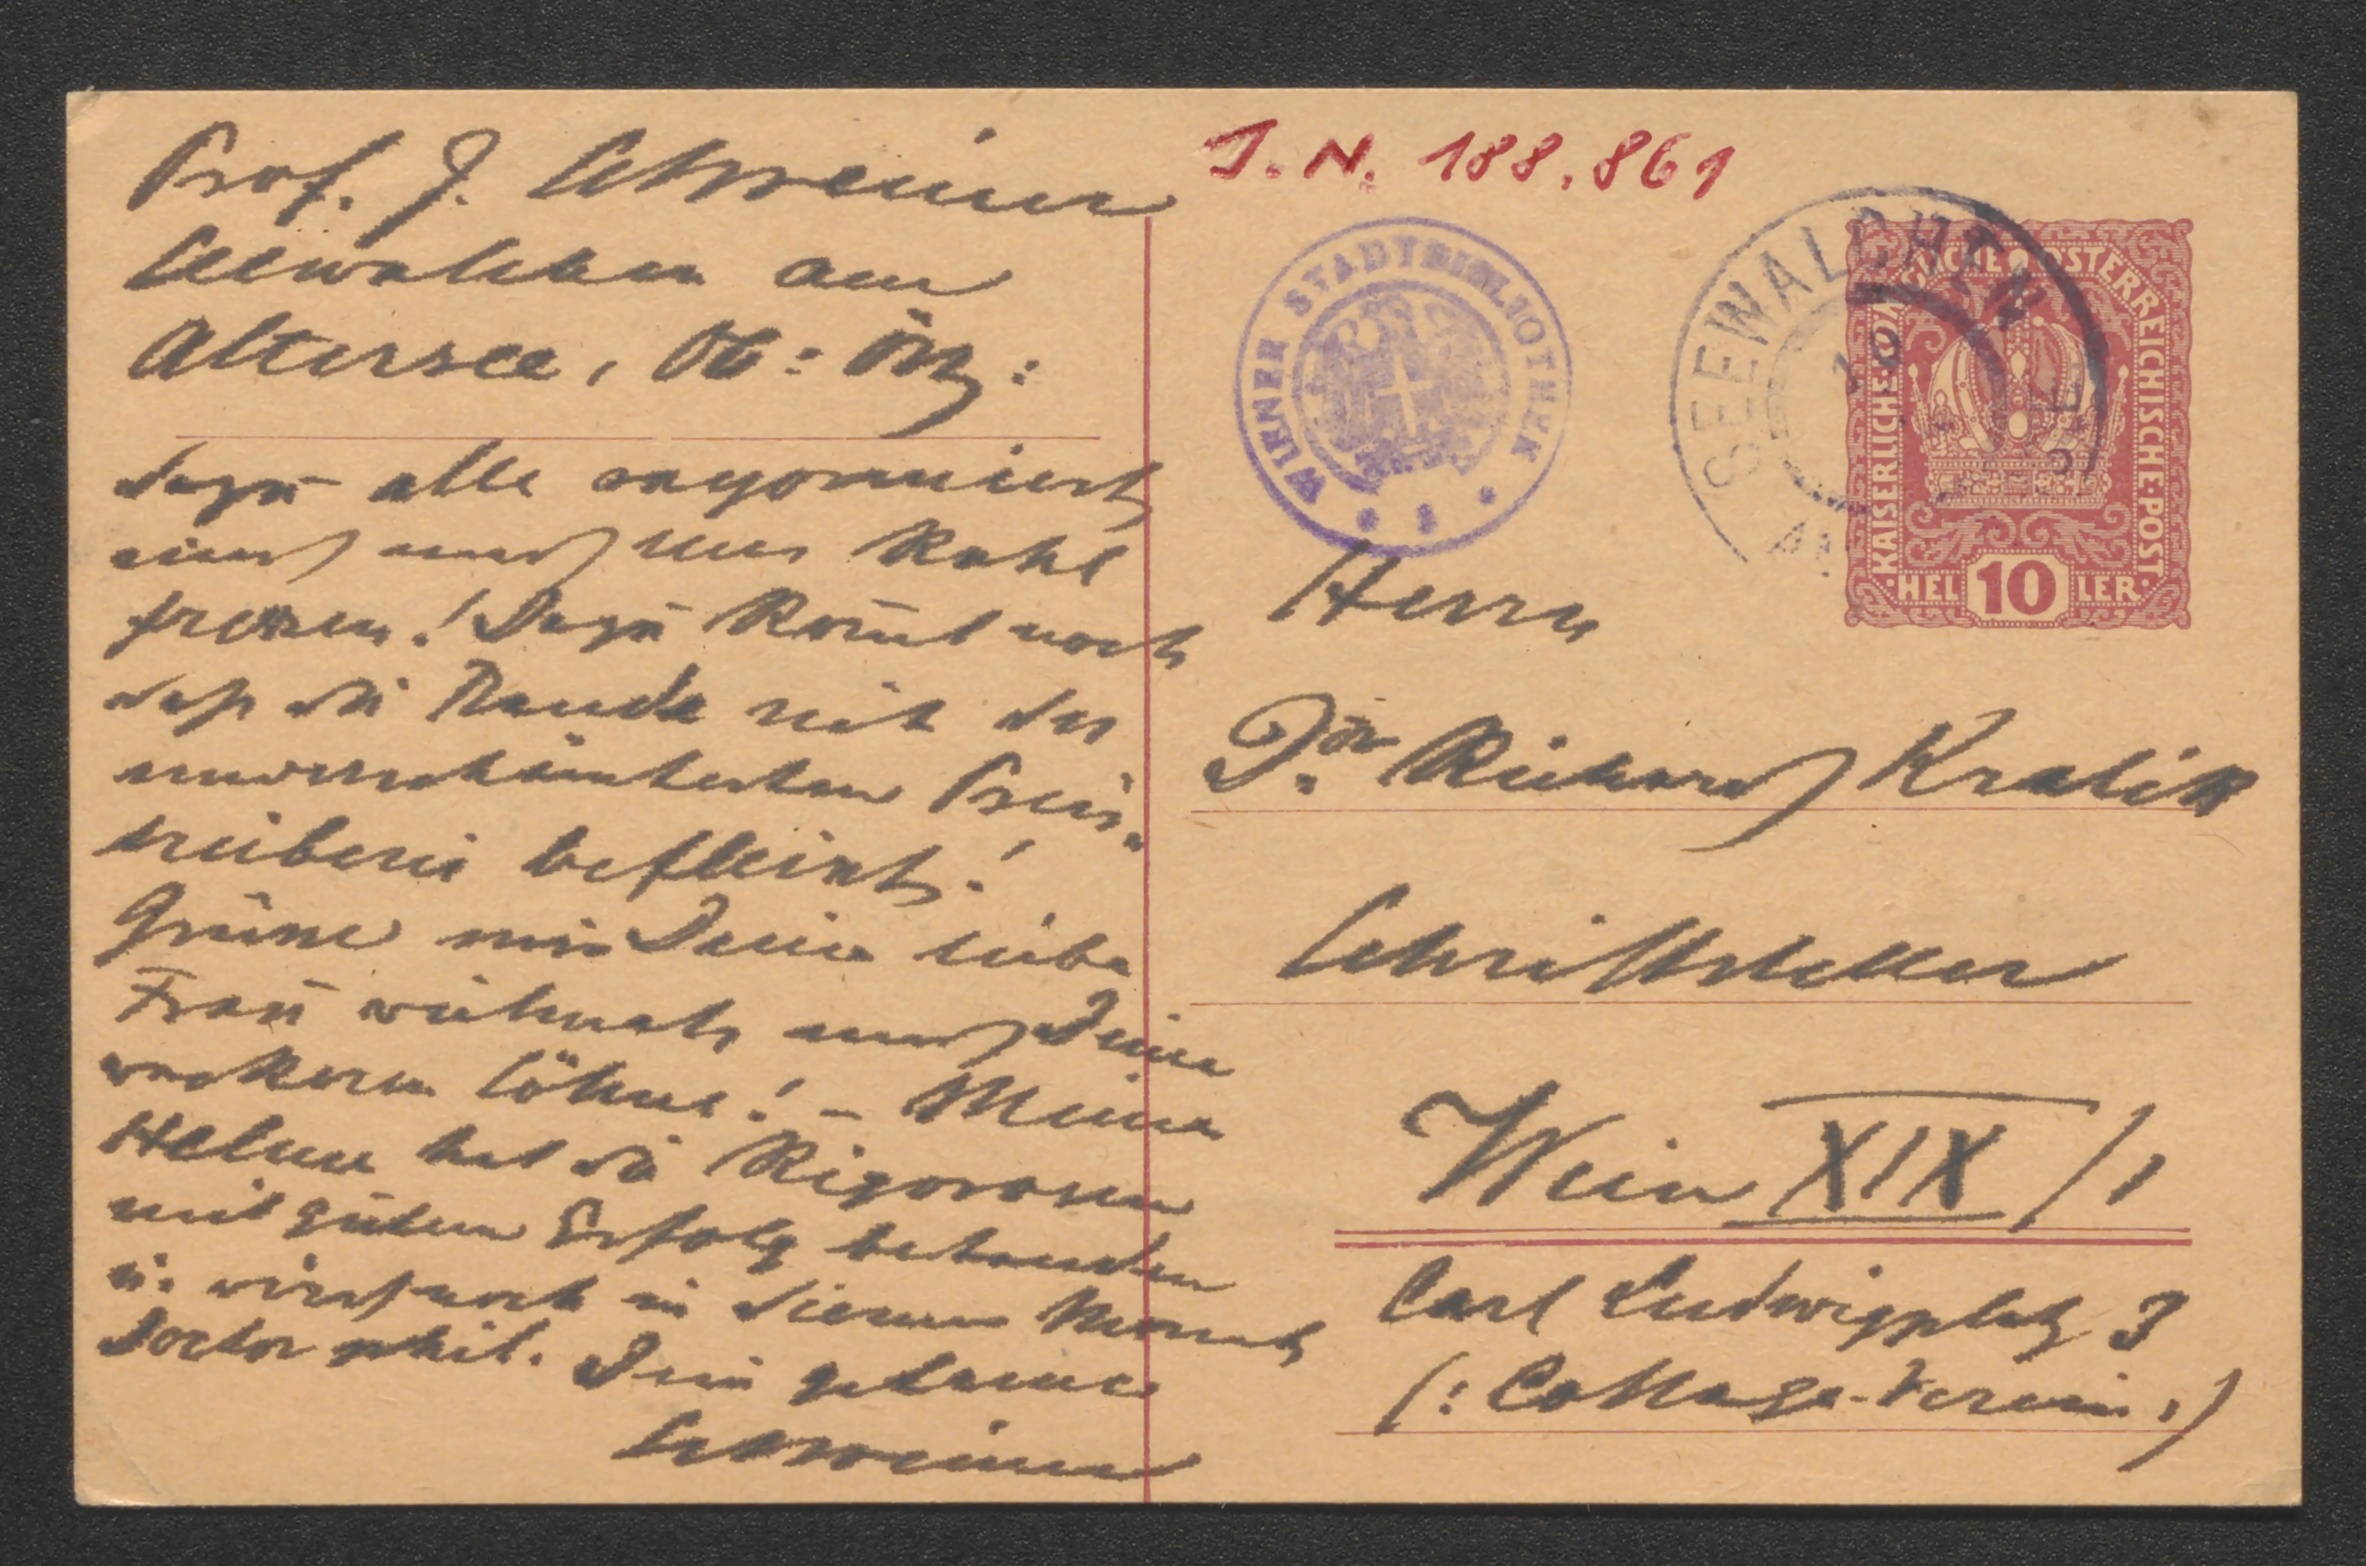 Prof. J. Schweiner
Seewalchen am
Attersee, Ob: Öst:
dazu alle rayonniert
sind und uns Kahl
fressen! Dazu kom̄t noch
daß die Bande sich der
unverschämtesten Preis-
treiberei befleißt!
Grüsse mir Deine liebe
Frau vielmals und Deine
wackeren Söhne! – Meine
Helene hat die Rigorosen
mit gutem Erfolg bestanden
u. wird noch in diesem Monat
Doctor phil. Dein getreuer
Schweiner
J. N. 188.861
WIENER STADTBIBLIOTHEK
SEEWALCHEN
KAISERLICHE KÖNIGLICHE ÖSTERREICHISCHE POST
HEL 10 LER
Herrn
Dor Richard Kralik
Schriftsteller
Wien XIX/1
Carl Ludwigplatz 3
(: Cottage-Verein :)